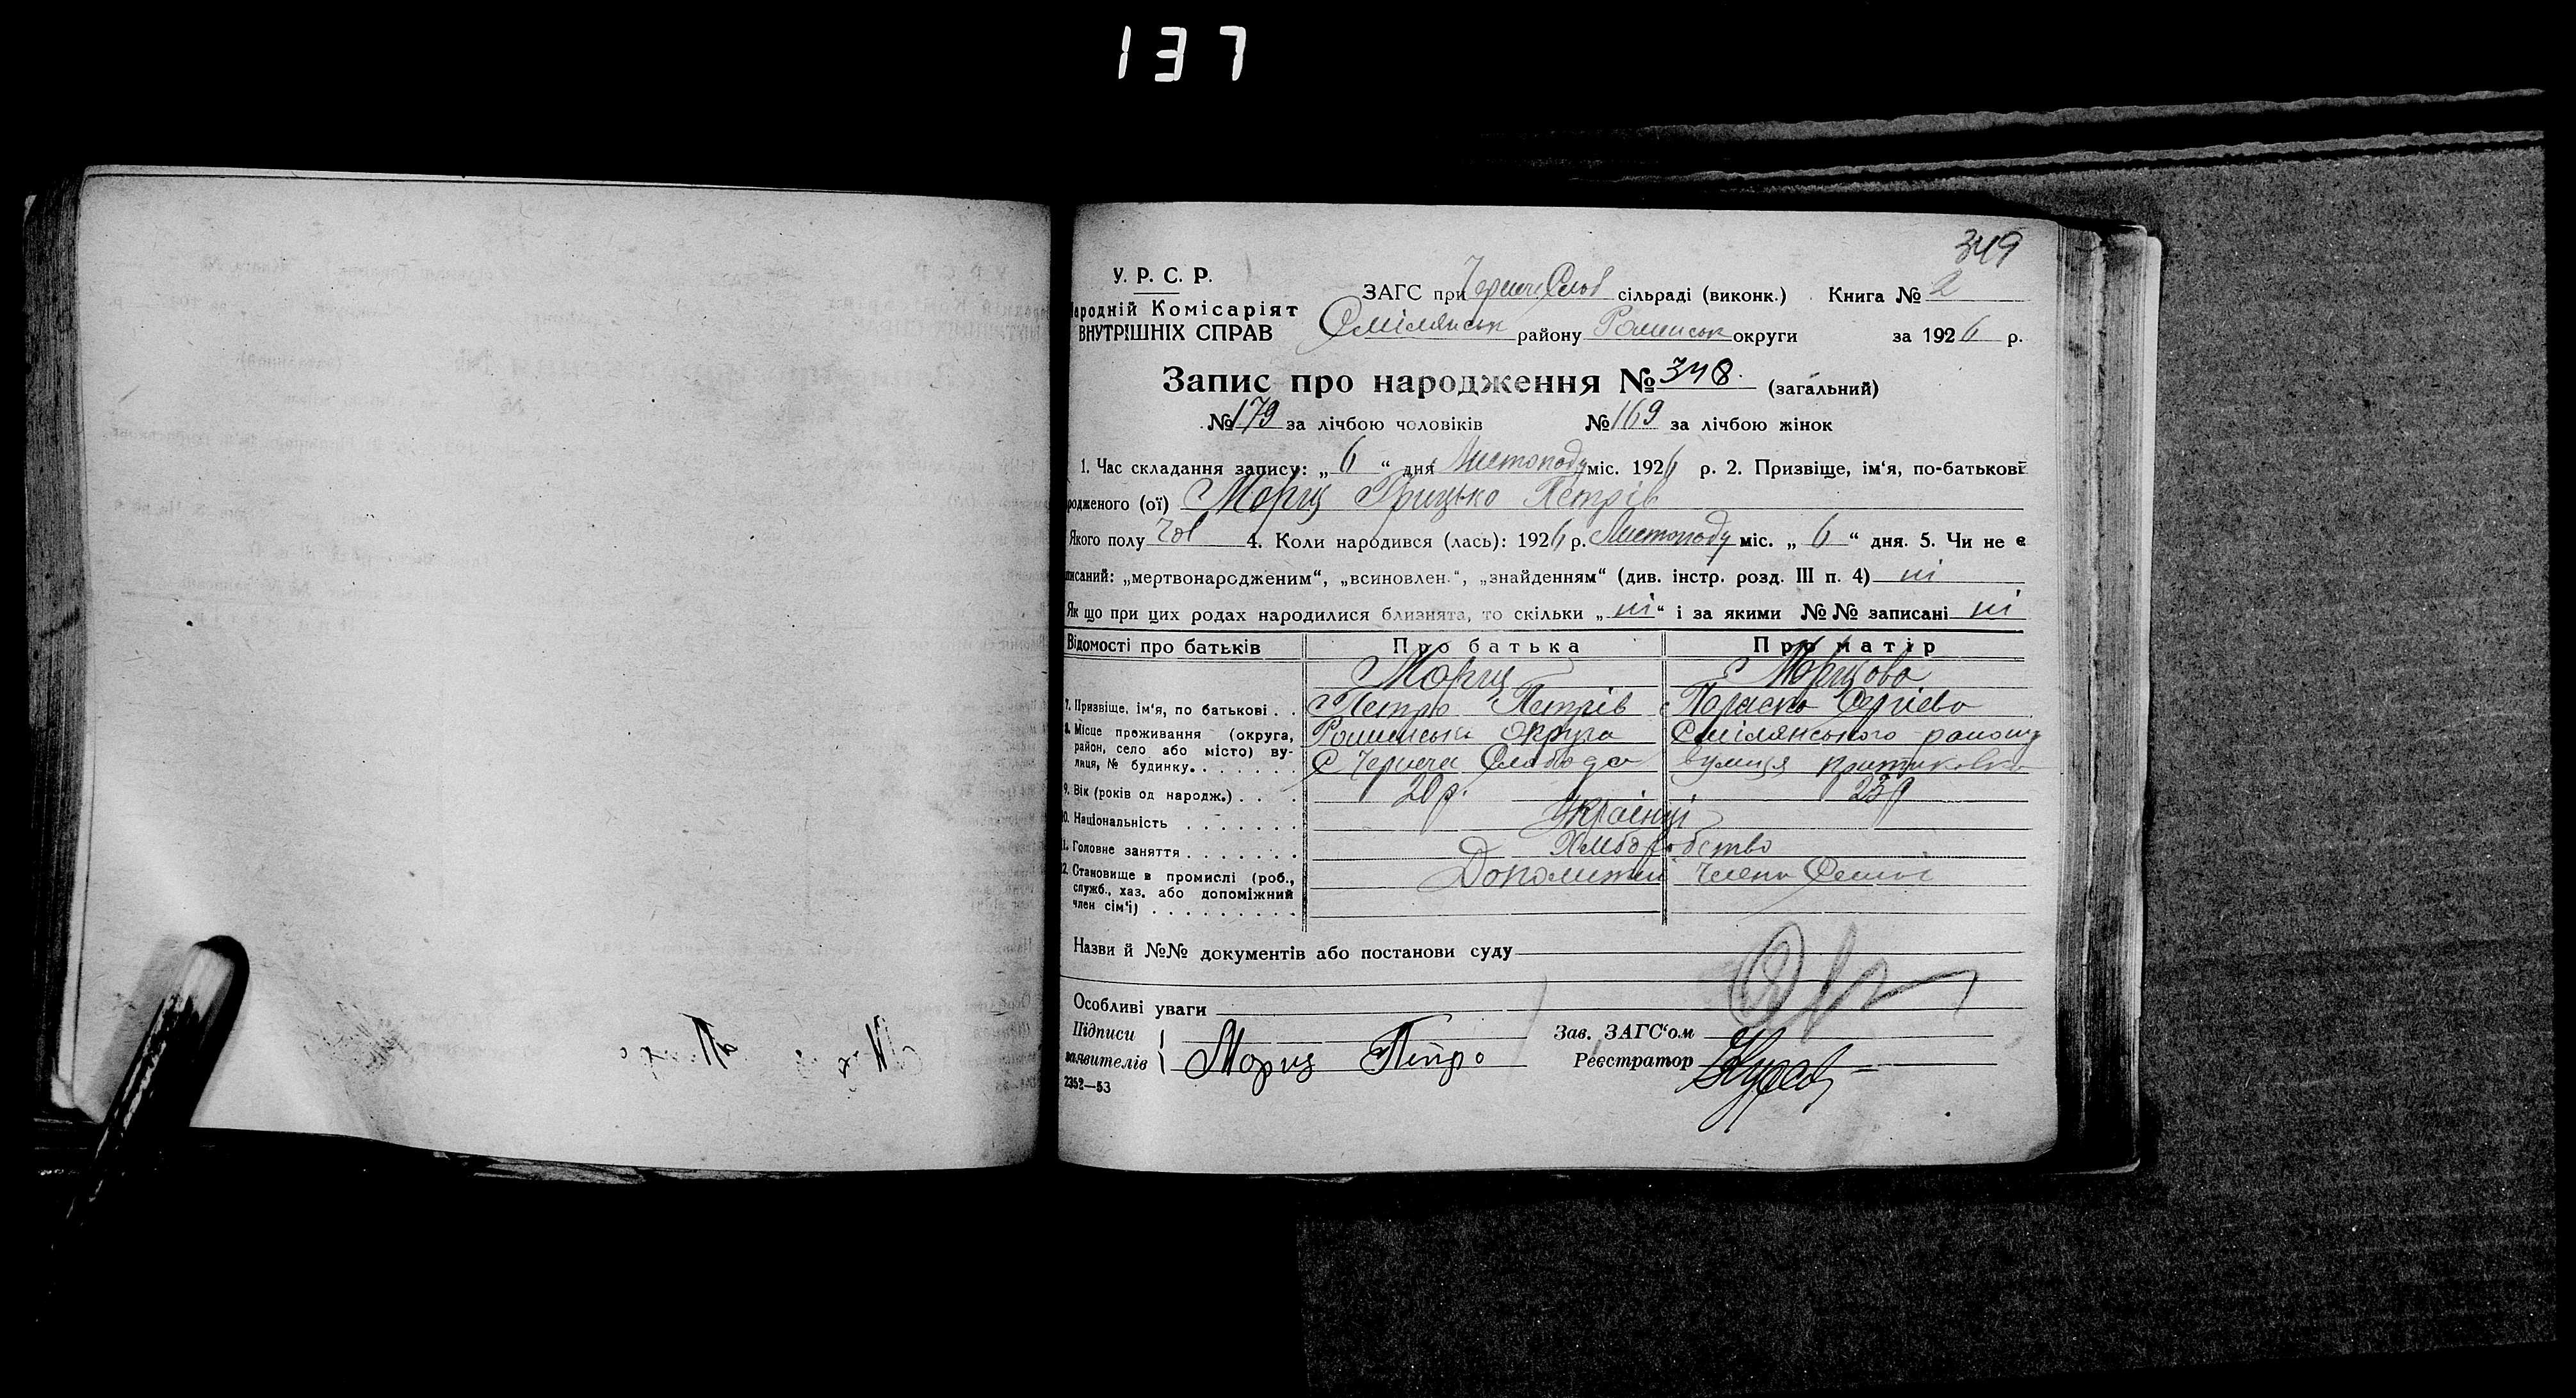 137
349
У. Р. С. Р.
ЗАГС при Чернеч Слоб сільраді (виконк.) Книга № 2
Народній Комісаріят
ВНУТРІШНІХ СПРАВ
Смілянськ району Роменськ округи за 1926 р.
Запис про народження № 348. (загальний)
№ 179 за лічбою чоловіків № 169 за лічбою жінок
1. Час складання запису: „ 6 “ дня Листопаду міс. 1926 р. 2. Призвіще, ім‘я, по-батькові
родженого (ої) Мориц Грицько Петрів
Якого полу чол 4. Коли народився (лась): 1926 р. Листопаду міс. „ 6 “ дня. 5. Чи не є
писаний: „мертвонародженим“, „всиновлен.“, „знайденням“ (див. інстр. розд. III п. 4) ні
Як що при цих родах народилися близнята, то скільки „ ні “ і за якими №№ записані ні
Відомості про батьків Про батька Про матір
Мориц Морицова
7. Призвіще, ім‘я, по батькові . . Петро Петрів Параска Сергієва
8. Місце проживання (округа, район, село або місто) вулиця, № будинку. Роменська округа Смілянського району
С Чернеча Слобода вулиця
9. Вік (років од народж.) . . . 20 р. 23 р
10. Національність . . . . . . . Українці
11. Головне заняття . . . . . . . Хліборобство
12. Становище в промислі (роб., служб., хаз. або допоміжний член сім‘ї) . . . . . . . . . Допоміжні члени Семьї
Назви й №№ документів або постанови суду
Особливі уваги
Підписи Зав. ЗАГС‘ом
заявителів Мориц Петро Реєстратор
2352—53